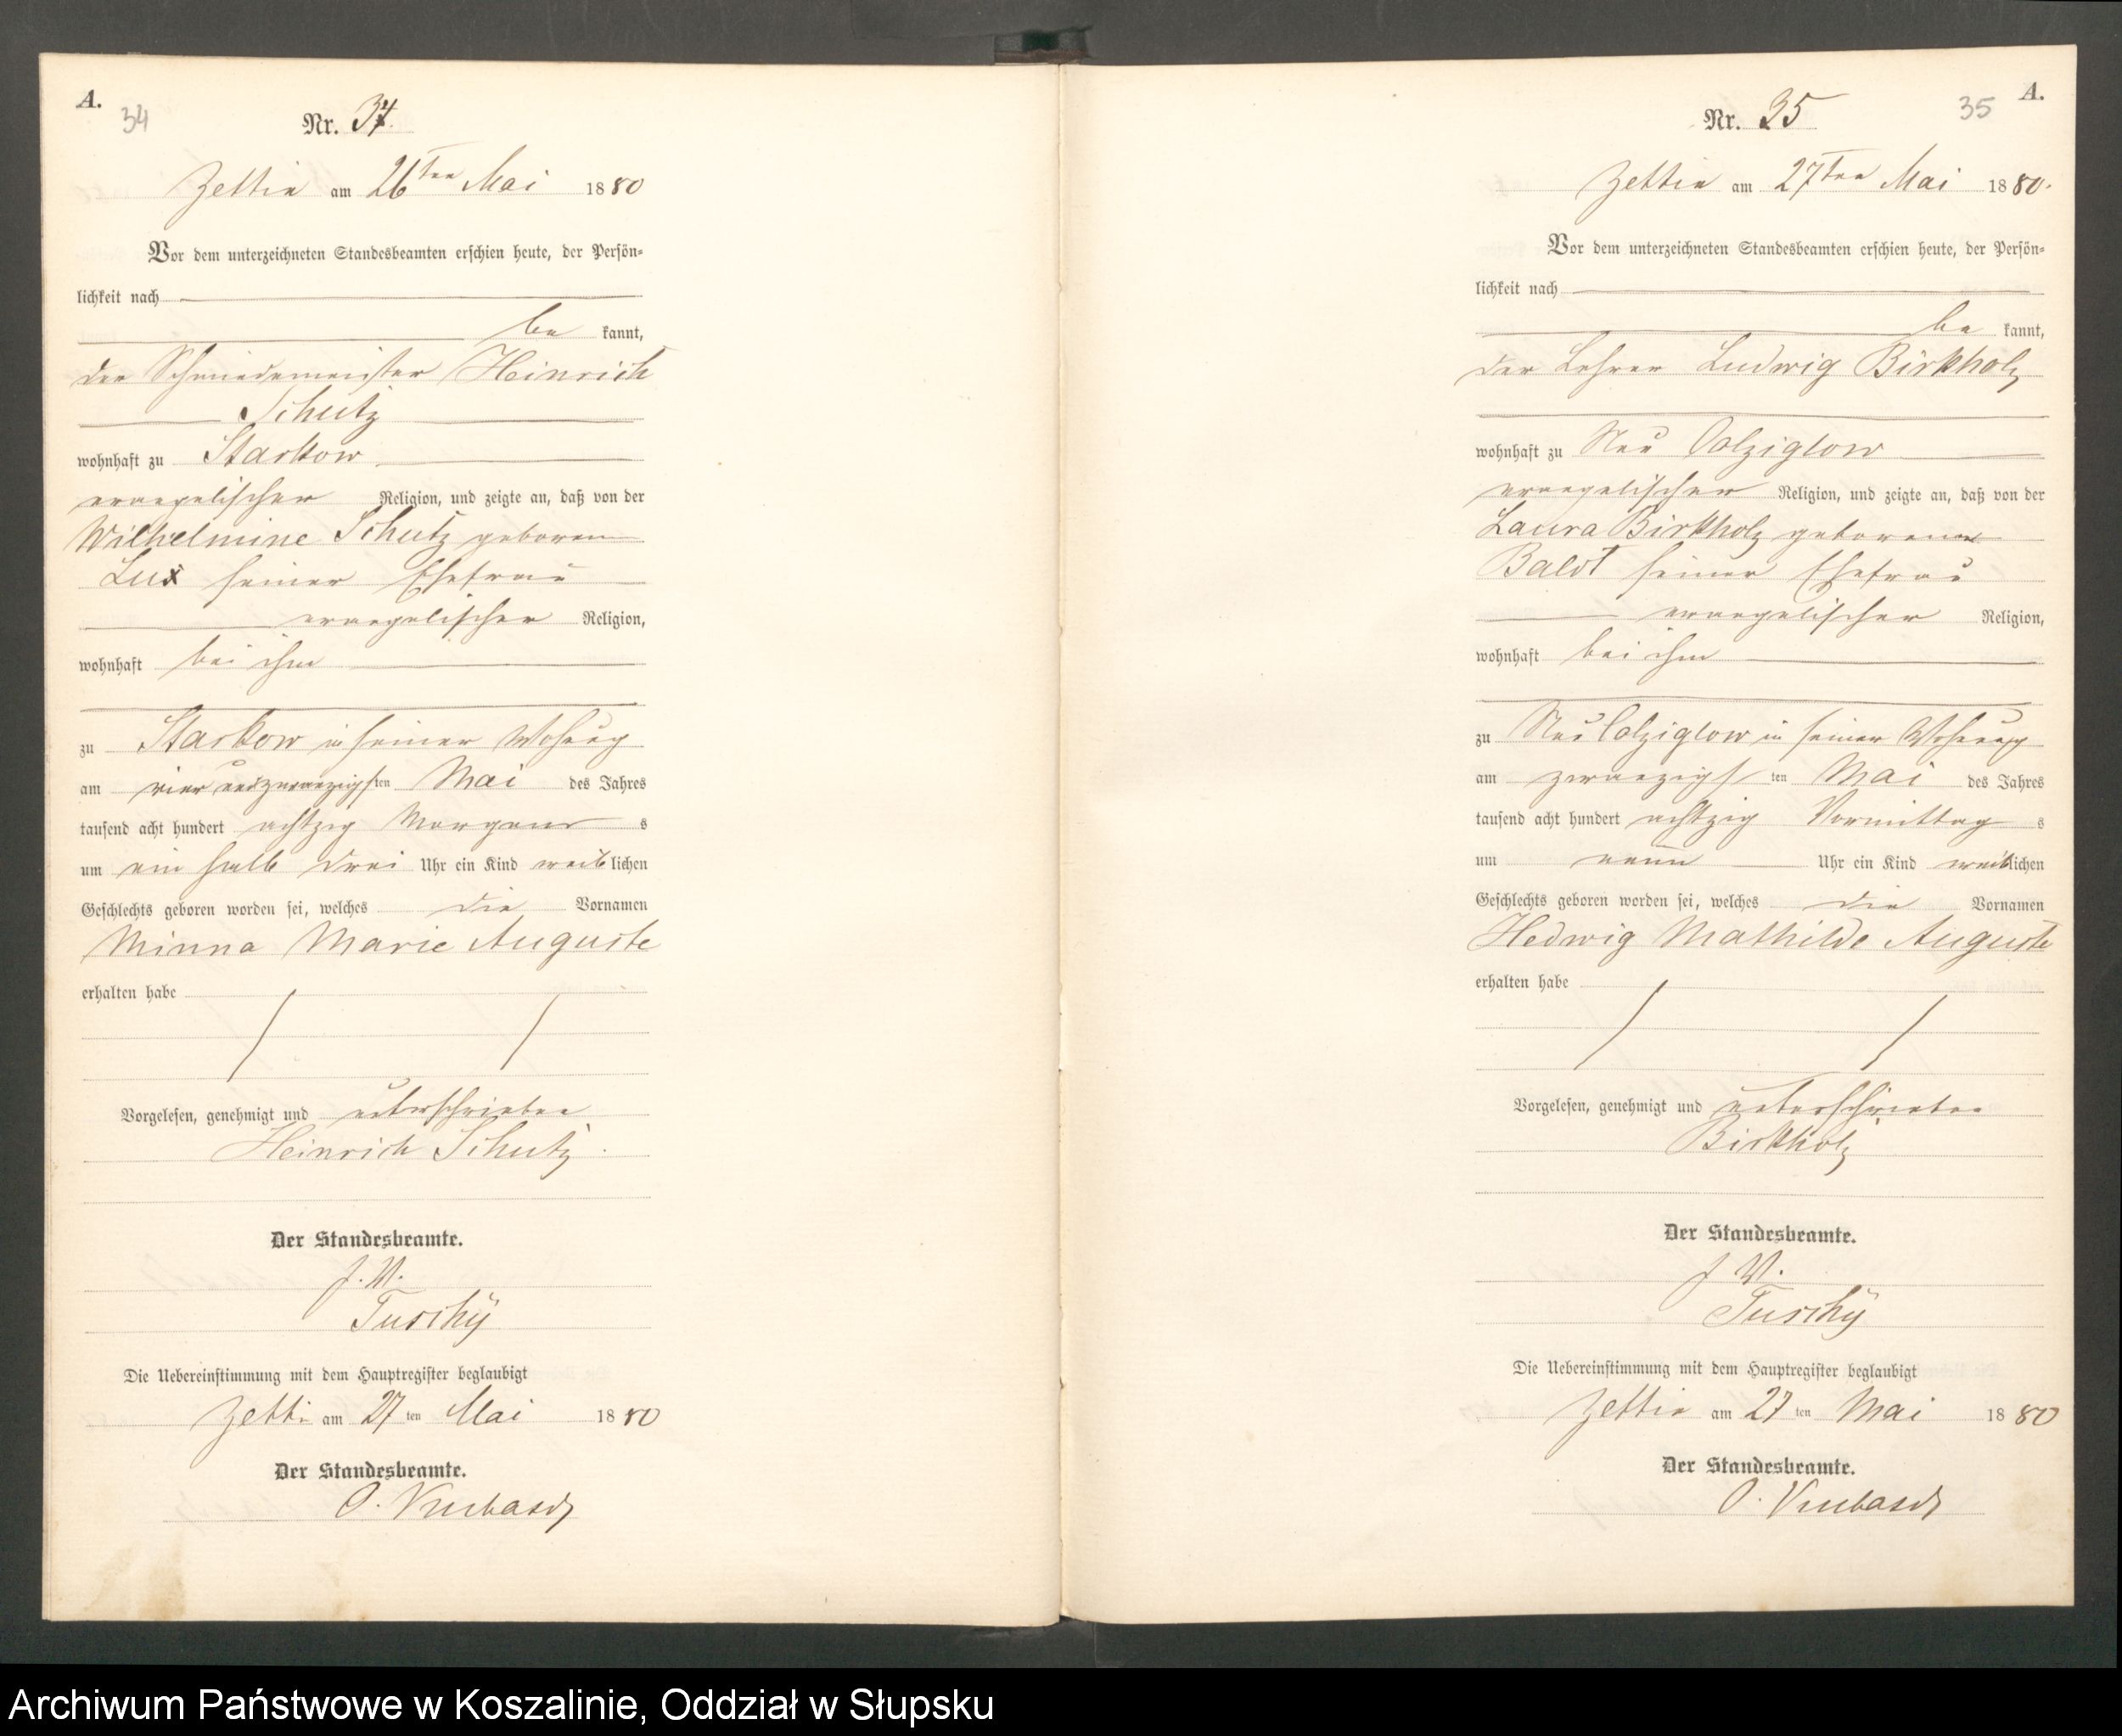 A.
34
Nr. 34.
Zettin am 26ten Mai 1880
Vor dem unterzeichneten Standesbeamten erschien heute, der Persön=
lichkeit nach
be kannt,
der Schmiedemeister Heinrich
Schutz
wohnhaft zu Starkow
evangelischer Religion, und zeigte an, daß von der
Wilhelmine Schutz geboren
Lux seiner Ehefrau
evangelischer Religion,
wohnhaft bei ihm
zu Starkow in seiner Wohnung
am vier und zwanzigsten Mai des Jahres
tausend acht hundert achtzig Morgens
um ein halb drei Uhr ein Kind weiblichen
Geschlechts geboren worden sei, welches die Vornamen
Minna Marie Auguste
erhalten habe
Vorgelesen, genehmigt und unterschrieben
Heinrich Schutz.
Der Standesbeamte.
J. V.
Tuschÿ
Die Uebereinstimmung mit dem Hauptregister beglaubigt
Zettin am 27ten Mai 1880
Der Standesbeamte.
A.
35
Nr. 35
Zettin am 27ten Mai 1880.
Vor dem unterzeichneten Standesbeamten erschien heute, der Persön=
lichkeit nach
be kannt,
der Lehrer Ludwig Birkholz
wohnhaft zu Neu Colziglow
evangelischer Religion, und zeigte an, daß von der
Laura Birkholz geborenen
Baldt seiner Ehefrau
evangelischer Religion,
wohnhaft bei ihm
zu Neu Colziglow in seiner Wohnung
am zwanzigsten Mai des Jahres
tausend acht hundert achtzig Vormittags
um neun Uhr ein Kind weiblichen
Geschlechts geboren worden sei, welches die Vornamen
Hedwig Mathilde Auguste
erhalten habe
Vorgelesen, genehmigt und unterschrieben
Birkholz
Der Standesbeamte.
J. V.
Tuschÿ
Die Uebereinstimmung mit dem Hauptregister beglaubigt
Zettin am 27ten Mai 1880
Der Standesbeamte.
Archiwum Państwowe w Koszalinie, Oddział w Słupsku